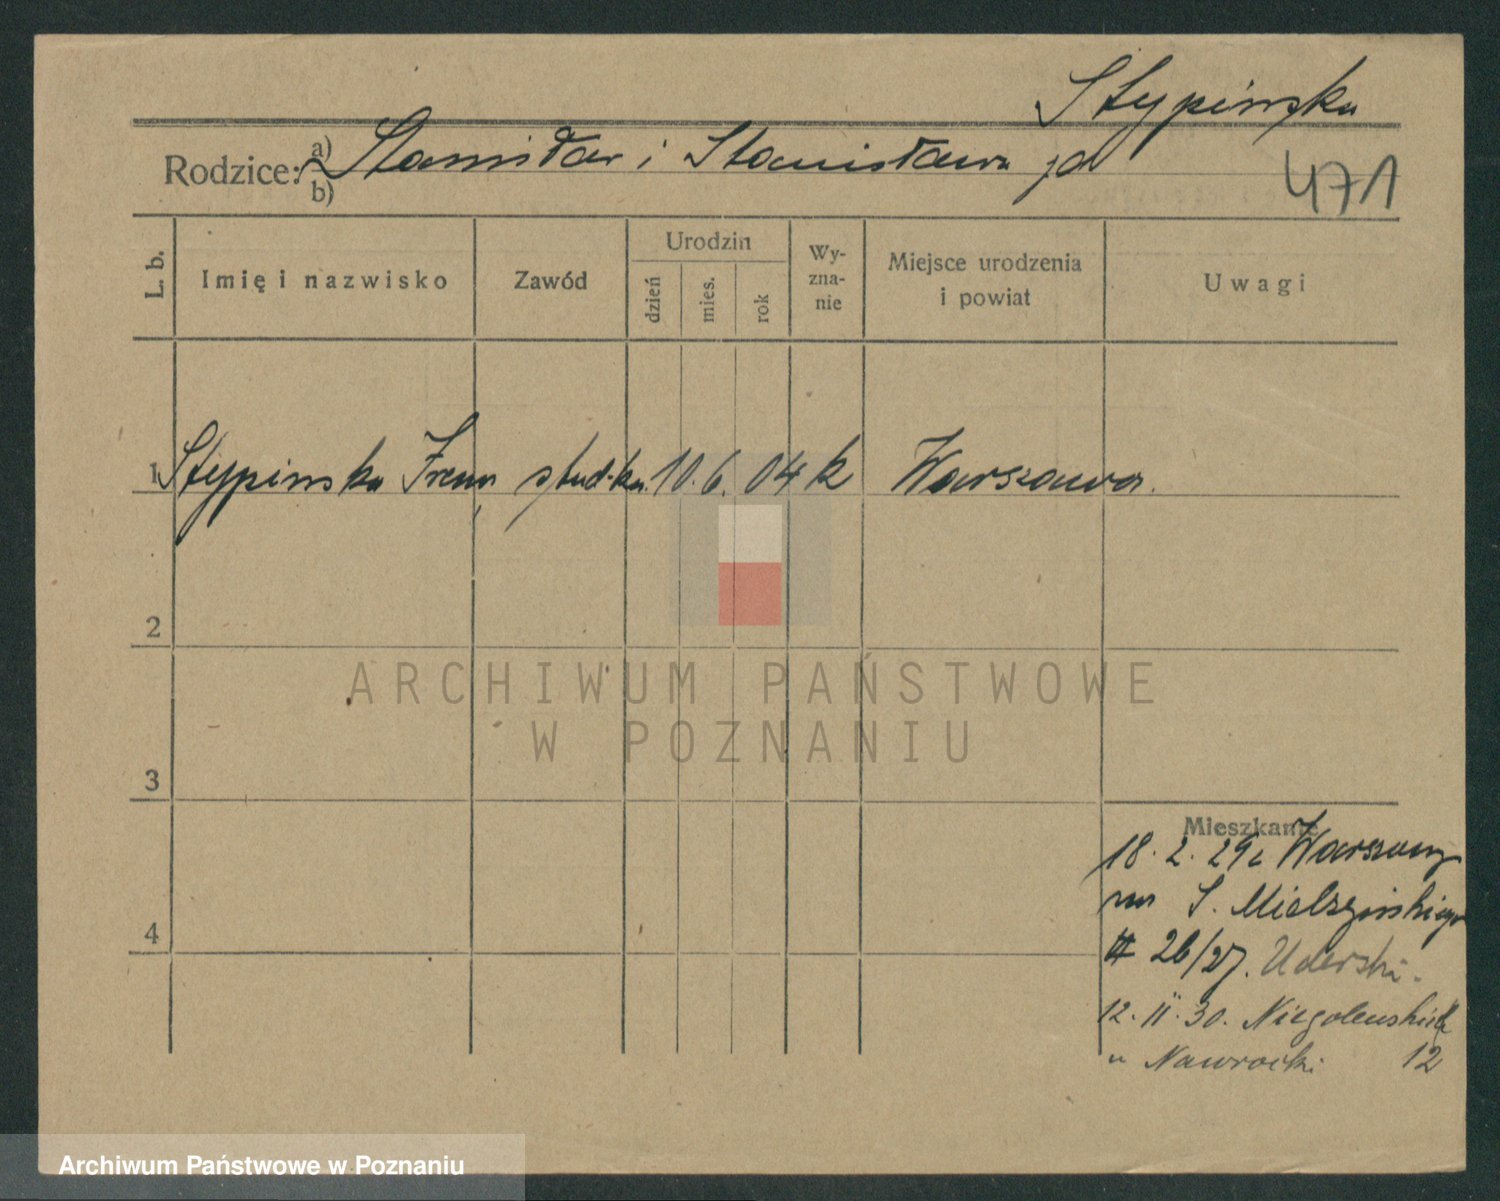 Stypinska
Rodzice: a) Stanisław i Stanisława jd
b)
471
L. b.
Imię i nazwisko
Zawód
Urodzin
dzień
mies.
rok
Wy-
zna-
nie
Miejsce urodzenia
i powiat
Uwagi
1 Stypinska Irena stud-ka 10. 6. 04 k Warszawa.
2
3
4
ARCHIWUM PAŃSTWOWE
W POZNANIU
Mieszkanie
18. 2. 29 z Warszawy
S. Mielżyńskiego
26/27. Uderski.
12. II. 30. Niegolewskich
u Nawrocki 12
Archiwum Państwowe w Poznaniu